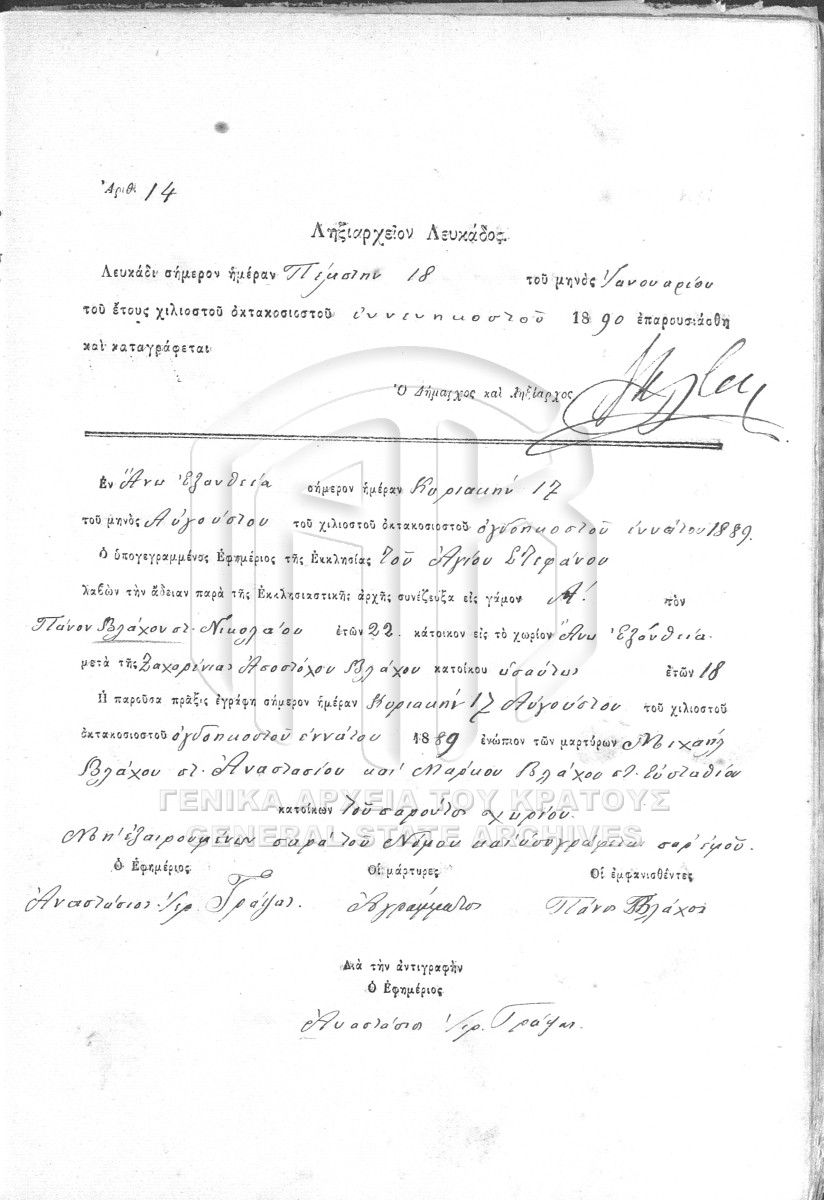 Ἀριθ. 14
Ληξιαρχεῖον Λευκάδος.
Λευκάδι σήμερον ἡμέραν Πέμπτην 18 τοῦ μηνὸς Ἰανουαρίου
τοῦ ἔτους χιλιοστοῦ ὀκτακοσιοστοῦ ἐννενηκοστοῦ 1890 ἐπαρουσιάσθη
καὶ καταγράφεται
Ὁ Δήμαρχος καὶ Ληξίαρχος
Ἐν Ἄνω Ἐξανθείᾳ σήμερον ἡμέραν Κυριακὴν 17
τοῦ μηνὸς Αὐγούστου τοῦ χιλιοστοῦ ὀκτακοσιοστοῦ ὀγδοηκοστοῦ ἐννάτου 1889.
Ὁ ὑπογεγραμμένος Ἐφημέριος τῆς Ἐκκλησίας τοῦ Ἁγίου Στεφάνου
λαβὼν τὴν ἄδειαν παρὰ τῆς Ἐκκλησιαστικῆς ἀρχῆς συνέζευξα εἰς γάμον Αʹ. τὸν
Πάνον Βλάχον π. Νικολάου ἐτῶν 22. κάτοικον εἰς τὸ χωρίον Ἄνω Ἐξάνθεια
μετὰ τῆς Ζαχορίνας Ἀποστόλου Βλάχου κατοίκου ὡσαύτως ἐτῶν 18
Ἡ παροῦσα πρᾶξις ἐγράφη σήμερον ἡμέραν Κυριακὴν 17 Αὐγούστου τοῦ χιλιοστοῦ
ὀκτακοσιοστοῦ ὀγδοηκοστοῦ ἐννάτου 1889 ἐνώπιον τῶν μαρτύρων Μιχαὴλ
Βλάχου π. Ἀναστασίου καὶ Μάρκου Βλάχου π. Εὐσταθίου
ΓΕΝΙΚΑ ΑΡΧΕΙΑ ΤΟΥ ΚΡΑΤΟΥΣ
κατοίκων τοῦ παρόντος χωρίου.
GENERAL STATE ARCHIVES
Μὴ ἐξαιρουμένων παρὰ τοῦ Νόμου καὶ ὑπογράφεται παρ' ἐμοῦ.
Ὁ Ἐφημέριος Οἱ μάρτυρες Οἱ ἐμφανισθέντες
Ἀναστάσιος Ἱερ. Γράψας. Ἀγράμματοι Πάνος Βλάχος
Διὰ τὴν ἀντιγραφὴν
Ὁ Ἐφημέριος
Ἀναστάσιος Ἱερ. Γράψας.